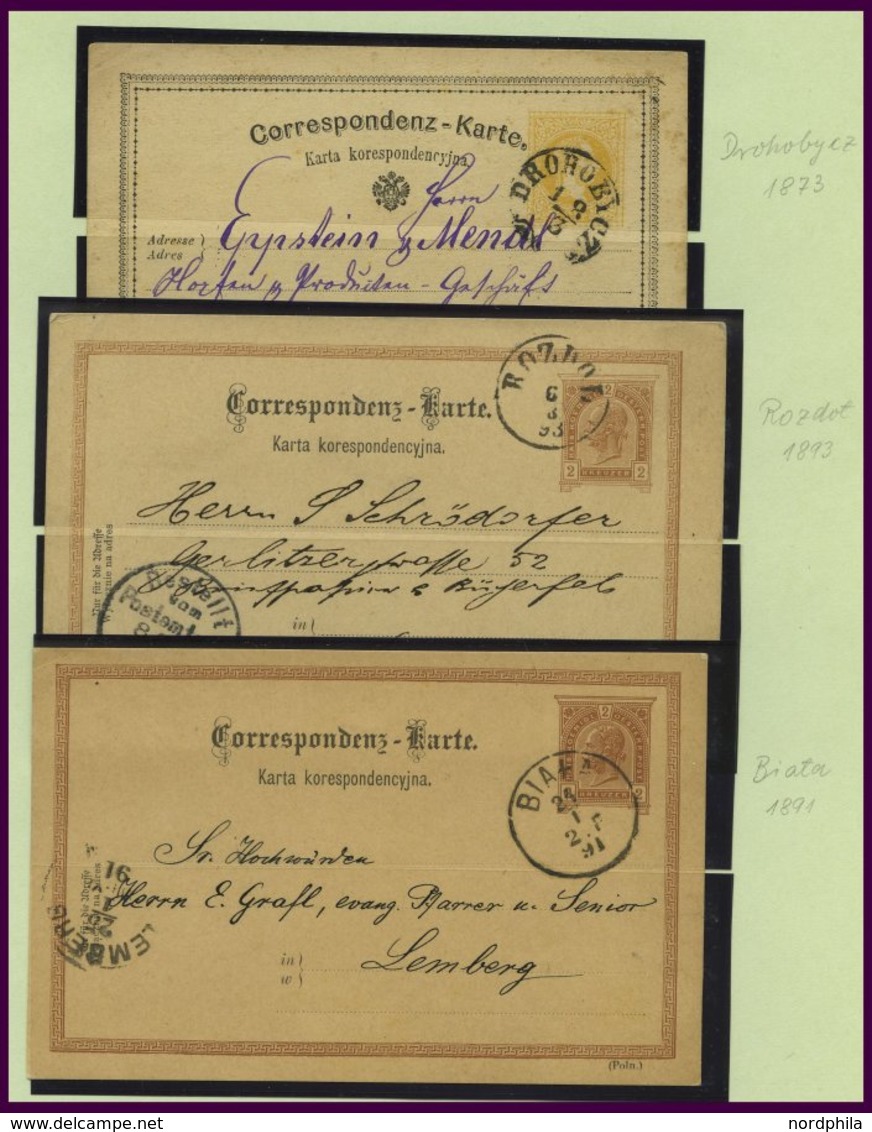 Correspondenz-Karte.
Karta korespondencyjna
Herrn
Adresse
Adres
Eppstein & Mendl
Hopfen & Produkten-Geschäft
DROHOBICZ
Drohobycz
1873
ROZDOL
6
93
Correspondenz-Karte.
Karta korespondencyjna.
2
2 KREUZER 2
Herrn S Schrödorfer
Gerlitzerstrasse 52
Nur für die Adresse
Wyłącznie na adres
Bestellt
vom
Postamt
in
Rozdot
1893
Correspondenz-Karte.
Karta korespondencyjna.
2
2 KREUZER 2
BIAŁA
91
Sr. Hochwürden
Herrn E. Grafl, evang. Pfarrer u. Senior
in
w
Lemberg
LEMBERG
91
(Poln.)
Biata
1891
nordphila